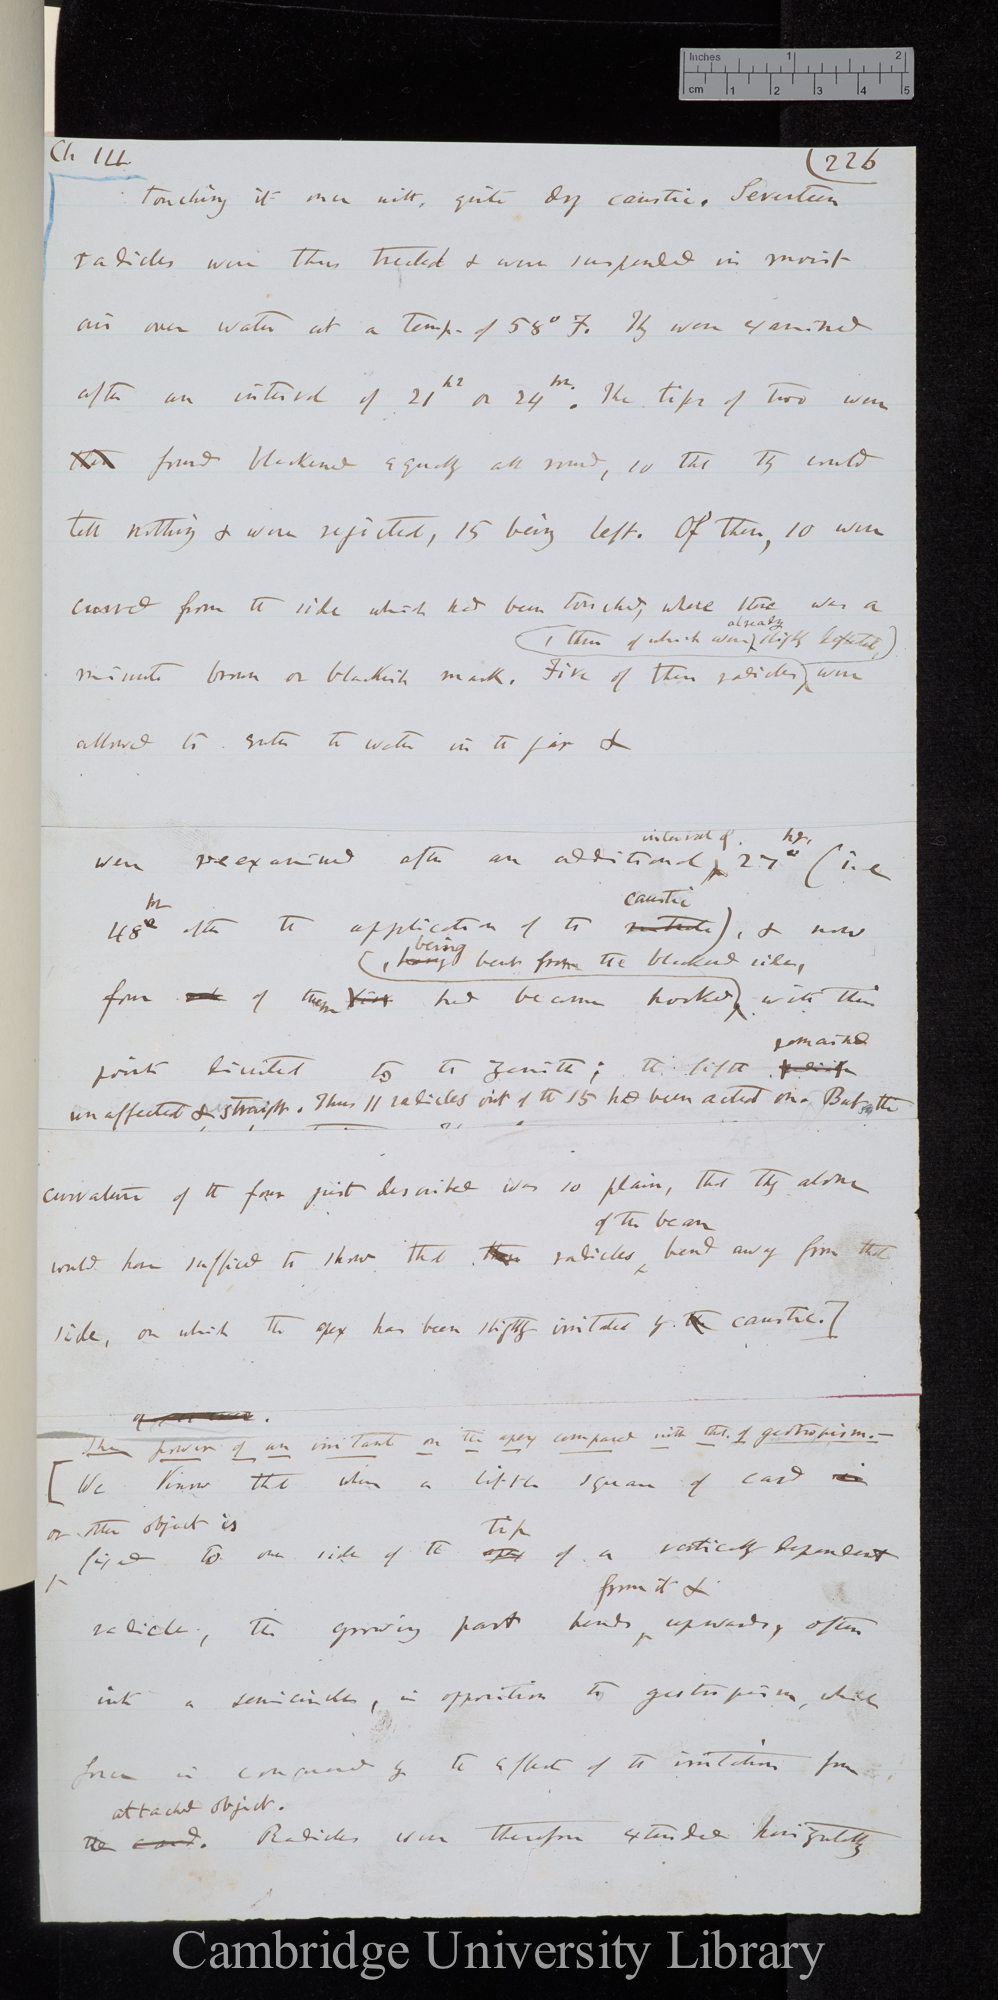 Inches 1 2
cm 1 2 3 4 5
Ch III
(226
touching it once with quite dry caustic. Seventeen
radicles were thus treated & were suspended in moist
air over water at a temp. of 58° F. They were examined
after an interval of 21 hr or 24 hr. The tips of two were
then found blackened equally all round, so that they could
tell nothing & were rejected, 15 being left. Of these, 10 were
curved from the side which had been touched, where there was a
already
(1 them of which were slightly
minute brown or blackish mark. Five of these radicles, were
allowed to enter the water in the jar &
interval of hrs.
were reexamined after an additional 27 (i.e
hr caustic
48 after the application of the nitrate), & now
(, having being bent from the blackened side,
four of them had become hooked, with their
remained
points directed to the zenith; the fifth
unaffected & straight. Thus 11 radicles out of the 15 had been acted on. But the
curvature of the four just described was so plain, that they alone
of the bean
would have sufficed to show that the radicles bend away from that
side, on which the apex has been slightly irritated by the caustic.]
The power of an irritant on the apex compared with that of geotropism.—
[We know that when a little square of card is
or other object is
tip
fixed to one side of the apex of a vertically dependent
from it &
radicle, the growing part bends upwards, often
into a semicircle, in opposition to geotropism, which
force is conquered by the effect of the irritation from
attached object.
the card. Radicles were therefore extended horizontally
Cambridge University Library